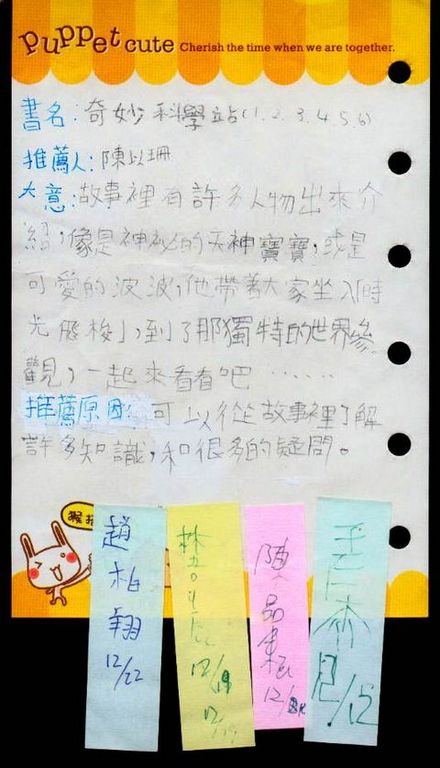 puppet cute Cherish the time when we are together.
書名:奇妙科學站(1.2.3.4.5.6)
推薦人:陳以珊
大意:故事裡有許多人物出來介
紹,像是神祕的天神寶寶,或是
可愛的波波,他帶著大家坐入「時
光飛梭」,到了那獨特的世界參
觀,一起來看看吧……
推薦原因:可以從故事裡了解
許多知識,和很多的疑問。
趙柏翔
12/22
12/19
12/19
陳品
12/
12/12